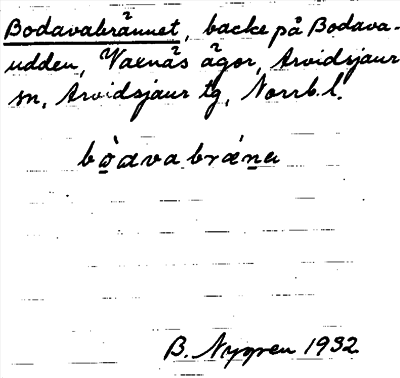 Bodavabrånnet, backe på Bodava-
udden, Vaenäs ägor, Arvidsjaur
sn, Arvidsjaur tg, Norrb. l.
bòdvabrána
B. Nygren 1932